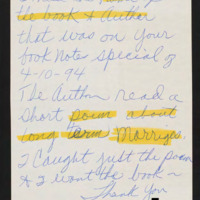 the book & Author
that was on your
book Notes special of
4-10-94
The Author read a
short poem about
long term Marriges.
I Caught just the poem
& I want the book –
Thank You